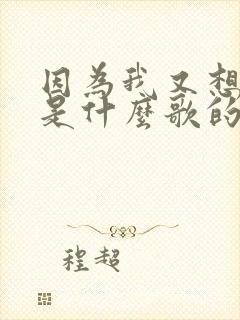 因為我又想
是什麼歌的
程超